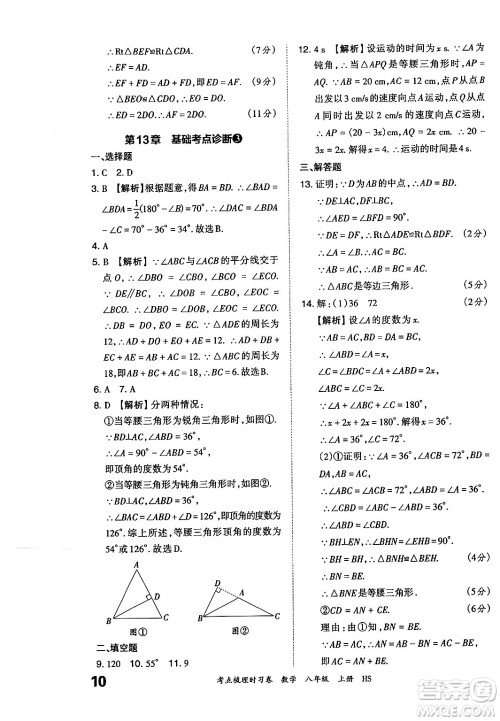 ∴Rt△BDA≌Rt△CDA. (7分)
∴EF=AF=AD.
∴ED=AD.
∴△BEO≌△CDO,∴EO=DO.
∴DO=AF=EO. (11分)
第13章 基础考点诊断❸
一、选择题
1. C 2. D
3. B 【解析】根据题意,得∠B=∠C=
1/2(180°-∠BAC)=70°.∴∠DAC=
∠C=70°.故选B.
4. A
5. B 【解析】∵∠ABC与∠ACB的平分线交于
点O,∴∠DBO=∠OBC,∠BCO=∠ECO.
∵DE∥BC,∴∠DOB=∠OBC,∠EOC=
∠BCO.∴∠DBO=∠DOB,∠EOC=∠ECO.
∴DB=DO,EO=EC.∵△ADE的周长为
12,∴AD+DE+AE=12.∴AD+DB+
EC+AE=AB+AC=12.∵△ABC的周长为
18,即AB+AC+BC=18,∴BC=6.故选B.
6. A 7. A
8. D 【解析】分两种情况:
①当等腰三角形为锐角三角形时,如图①.
∵BD⊥AC,∠ABD=36°,
∴∠A=90°-∠ABD=54°,
即顶角的度数为54°.
②当等腰三角形为钝角三角形时,如图②.
∵BD⊥AC,∠ABD=36°,∴∠BAD=54°.
∴∠BAC=180°-54°=126°,即顶角的度数为
126°.综上所述,等腰三角形顶角的度数为
54°或126°.故选D.
A
D
B
C
图①
D
A
B
C
图②
二、填空题
9. 120 10. 55° 11. 9
12. 4 s 【解析】设运动的时间为x s.∵∠A为
钝角,∴当△APQ是等腰三角形时,只有AP=
AQ.∵AB=20 cm,AC=12 cm,点P从点
B出发以3 cm/s的速度向点A运动,点Q从
点A同时出发以2 cm/s的速度向点C运动,
∴AP=(20-3x)cm,AQ=2x cm.∴20-
3x=2x.解得x=4.即运动的时间是4 s.
三、解答题
13. 证明:∵D为AB的中点,∴AD=BD.
∵DE⊥AC,DF⊥BC,
∴∠AED=∠BFD=90°. (2分)
∵DE=DF,∴Rt△ADE≌Rt△BDF.
∴∠A=∠B.∴CA=CB. (4分)
∵∠A=60°,
∴△ABC是等边三角形. (5分)
14. 解:(1)36 72 (2分)
【解析】设∠A的度数为x°.
∵AB=AC,BD=DA=BC.
∴∠ABC=∠C=∠BDC,
∠A=∠ABD.
∴∠ABC=∠C=∠BDC=∠A+
∠ABD=2∠A=2x°.
∵∠A+∠ABC+∠C=180°,
∴x+2x+2x=180°.解得x=36°.
∴∠ABC=∠C=72°.
(2)①证明:∵∠A=∠ABD=36°,
∠ABC=∠C=72°,
∴∠ABD=∠CBD=36°.
∵BH⊥EN,∴∠BHN=∠BHE=90°.
∵BH=BH,∴△BNH≌△BEH.
∴BN=BE. (4分)
∴△BNE是等腰三角形. (5分)
②CD=AN+CE. (6分)
理由:由①知,BN=BE.
∵AB=AC,∴AN=AB-BN=AC-BE.
10
考点梳理时习卷 数学 八年级 上册 HS